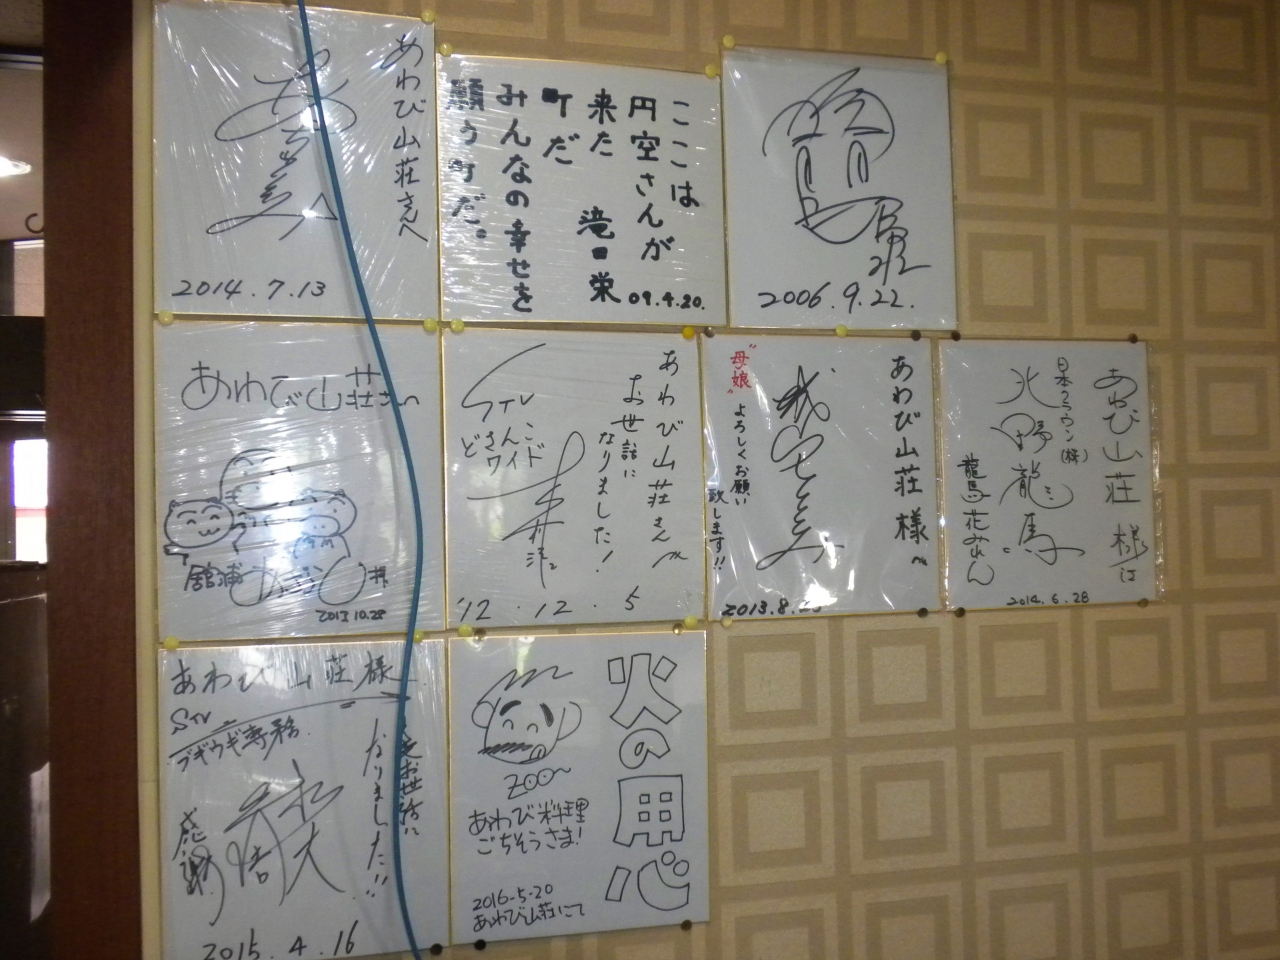 あわび山荘さんへ
2014.7.13
ここは
円空さんが
来た
町だ
みんなの幸せを
願う町だ。
滝田栄
09.4.20.
2006.9.22.
あわび山荘さんへ
舘浦
2013 10.28
あわび山荘さんへ
お世話に
なりました!
STV
どさんこ
ワイド
'12.12.5
あわび山荘様へ
"母娘"
よろしくお願い
致します!!
2013.8.
あわび山荘様江
日本クラウン(株)
北野龍馬
龍馬花みれん
2014.6.28
あわび山荘様
STV
ブギウギ専務
お世話に
なりました!!
感謝
2015.4.16
火の用心
ZOO~
あわび料理
ごちそうさま!
2016-5-20
あわび山荘にて